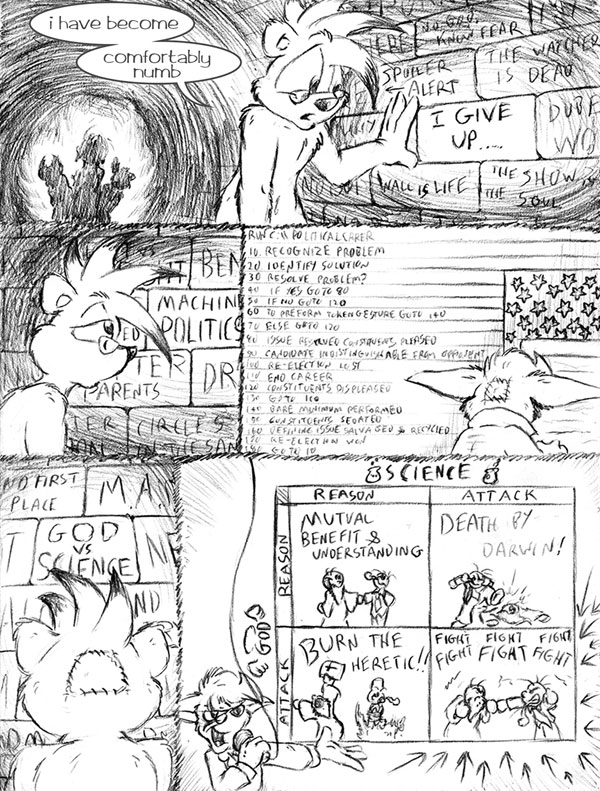 i have become
comfortably
numb
SPOILER
ALERT
FEAR
KNOW
THE WATCHER
IS DEAD
I GIVE
UP....
DUDE
WALL IS LIFE
THE SHOW
THE SOUL
BEN
MACHIN
POLITIC
TER
DR
PARENTS
CIRCLES
IN THE SAN
RUN C:\\POLITICALCAREER
10 RECOGNIZE PROBLEM
20 IDENTIFY SOLUTION
30 RESOLVE PROBLEM?
40 IF YES GOTO 80
50 IF NO GOTO 120
60 TO PREFORM TOKEN GESTURE GOTO 140
70 ELSE GOTO 120
80 ISSUE RESOLVED CONSTITUENTS PLEASED
90 CANDIDATE INDISTINGUISHABLE FROM OPPONENT
100 RE-ELECTION LOST
110 END CAREER
120 CONSTITUENTS DISPLEASED
130 GOTO 100
140 BARE MINIMUM PERFORMED
150 CONSTITUENTS SEDATED
160 DEFINING ISSUE SALVAGED & RECYCLED
170 RE-ELECTION WON
180 GOTO 10
AND FIRST
PLACE
M.A.
GOD
VS
SCIENCE
ND
SCIENCE
REASON
ATTACK
GOD
REASON
MUTUAL
BENEFIT &
UNDERSTANDING
DEATH BY
DARWIN!
ATTACK
BURN THE
HERETIC!!
FIGHT FIGHT FIGHT
FIGHT FIGHT FIGHT